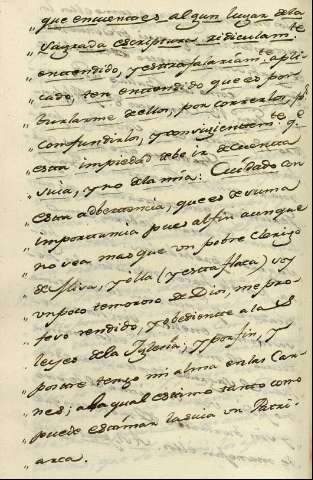 que encuentres algun lugar de la
" Sagrada escriptura ridiculam.te
" entendido, y estrafalariam.te apli-
" cado, ten entendido que es por
" burlarme de ellos, por correrlos, p.r
" confundirlos, y consiguientem.te q.e
" esta impiedad debe ir de cuenta
" suia, y no de la mia: Cuidado con
" esta advertencia, que es de suma
" importancia pues al fin aunque
" no sea mas que un pobre Clerigo
" de Misa, y olla (y esta flaca) voy
" un poco temeroso de Dios, me pro-
" feso rendido, y obediente a las
" leyes de la Iglesia; y por fin, y
" postre tengo mi alma en las Car-
" nes; a la qual estimo tanto como
" puede estimar la suia un Patri-
" arca.